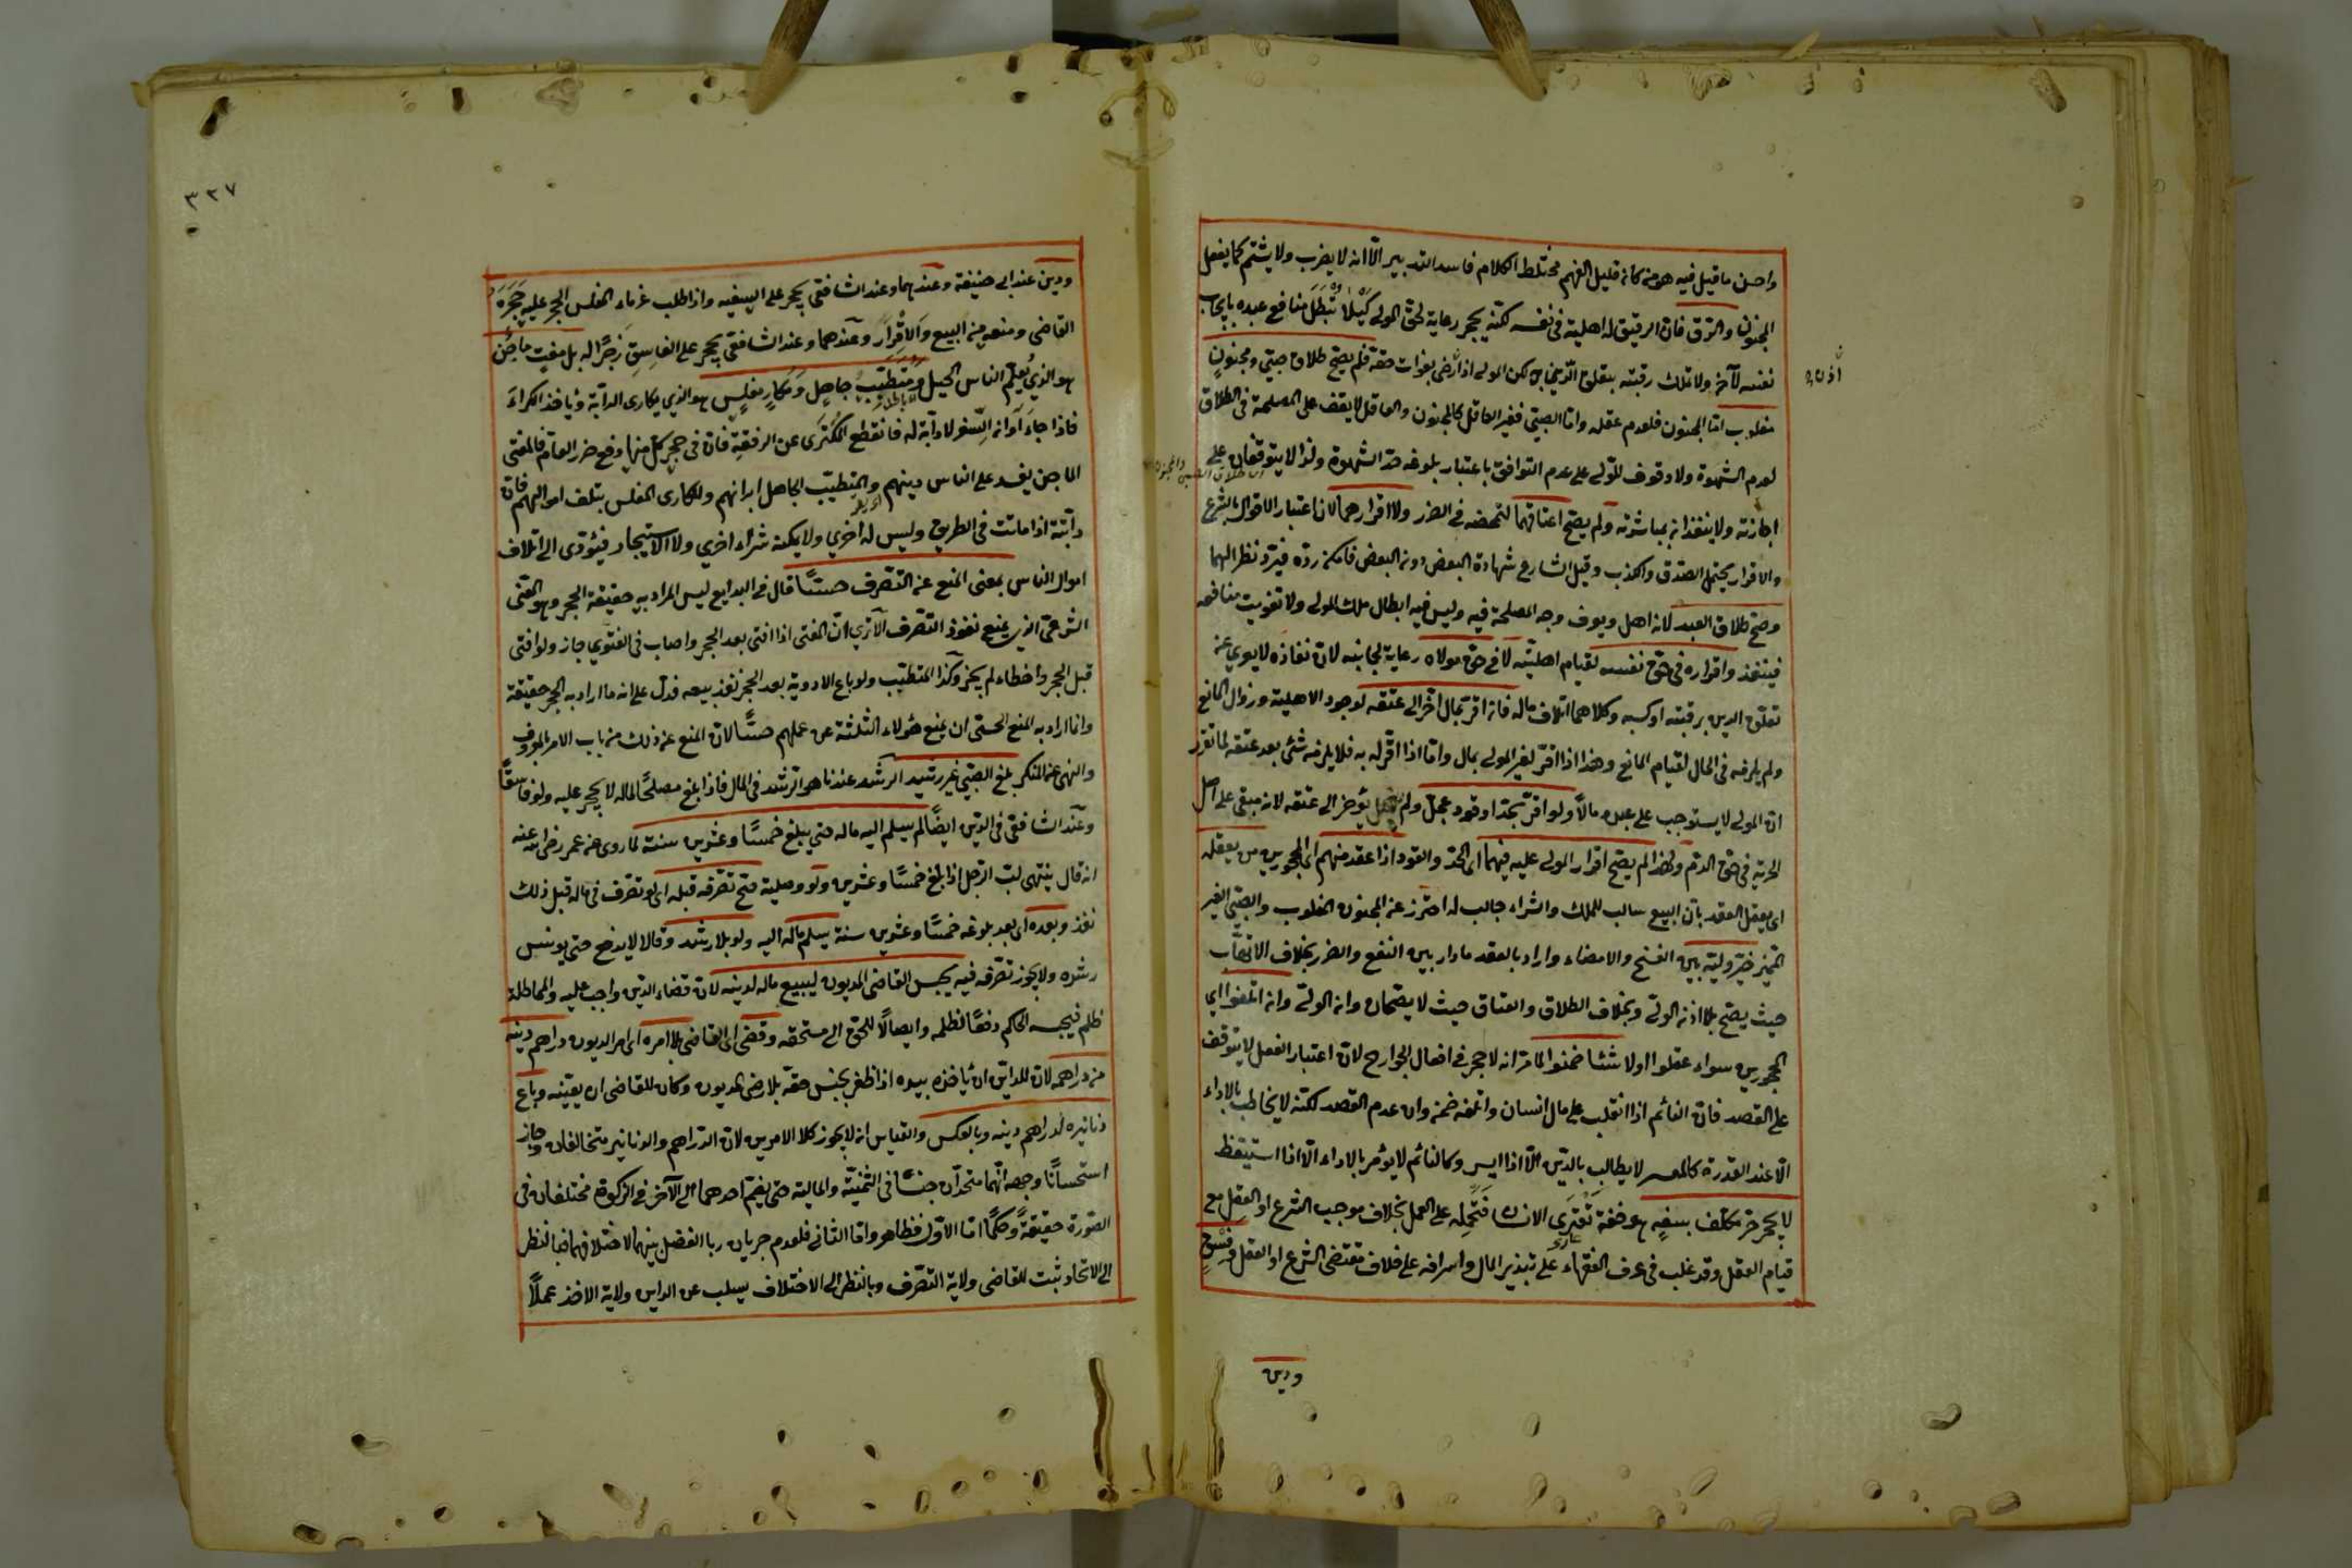 واحسن ما قيل فيه هو من كان قليل الفهم مختلط الكلام فاسد التدبير الا انه لا يضرب ولا يشتم كما يفعل
المجنون والرق فان الرقيق له اهلية في نفسه لكنه يحجر رعاية لحق المولى كيلا تبطل منافع عبده بايجاب
نفسه لآخر ولا تملك رقبته بتعلق الدين به لكن المولى اذا رضي بفوات حقه فلم يصح طلاق صبي ومجنون
مغلوب اما المجنون فلعدم عقله واما الصبي فغير العاقل كالمجنون والعاقل لا يقف على المصلحة في الطلاق
لعدم الشهوة ولا وقوف للولي على عدم التوافق باعتبار بلوغه حد الشهوة ولذا لا يتوقفان على
اي طلاق الصبي والمجنون
اجازته ولا ينفذان بمباشرته ولم يصح اعتاقهما لتمحضه في الضرر ولا اقرارهما لان اعتبار الاقوال بالشرع
والاقرار يحتمل الصدق والكذب وقبل الشارع شهادة البعض دون البعض فامكن رده فيرد نظرا لهما
وصح طلاق العبد لانه اهل ويعرف وجه المصلحة فيه وليس فيه ابطال ملك المولى ولا تفويت منافعه
فينفذ واقراره في حق نفسه لقيام اهليته لا في حق مولاه رعاية لجانبه لان نفاذه لا يعرى عن
تعلق الدين برقبته او كسبه وكلاهما اتلاف ماله فان اقر بمال اخر الى عتقه لوجود الاهلية وزوال المانع
ولم يلزمه في الحال لقيام المانع وهذا اذا اقر لغير المولى بمال واما اذا اقر له به فلا يلزمه شئ بعد عتقه لما تقرر
ان المولى لا يستوجب على عبده مالا ولو اقر بحد او قود عجل ولم يؤخر الى عتقه لانه مبقى على اصل
الحرية في حق الدم ولهذا لم يصح اقرار المولى عليه فيهما اي الحد والقود اذا عقد منهم اي المحجورين من يعقله
اي يعقل العقد بان البيع سالب للملك والشراء جالب له احترز عن المجنون المغلوب والصبي الغير
المميز خير وليه بين الفسخ والامضاء واراد بالعقد ما دار بين النفع والضرر بخلاف الاتهاب
حيث يصح بلا اذن الولي وبخلاف الطلاق والعتاق حيث لا يصحان وان الولي وان اتلفوا اي
المحجورين سواء عقلوا اولا شيئا ضمنوا لما مر انه لا حجر في افعال الجوارح لان اعتبار الفعل لا يتوقف
على القصد فان النائم اذا انقلب على مال انسان واتلفه ضمنه وان عدم القصد لكنه لا يخاطب بالاداء
الا عند القدرة كالمعسر لا يطالب بالدين الا اذا ايسر وكالنائم لا يؤمر بالاداء الا اذا استيقظ
لا يحجر حر مكلف بسفه هو خفة تعتري الانسان فتحمله على العمل بخلاف موجب الشرع او العقل مع
قيام العقل وقد غلب في عرف الفقهاء على تبذير المال واسرافه على خلاف مقتضى الشرع او العقل وفسق
ودين
٣٢٧
ودين عند ابي حنيفة وعندهما وعند الشافعي يحجر على السفيه واذا طلب غرماء المفلس الحجر عليه حجره
القاضي ومنعه من البيع والاقرار وعندهما وعند الشافعي يحجر على الفاسق زجرا له بل مفت ماجن
هو الذي يعلم الناس الحيل ومتطبب جاهل ومكار مفلس هو الذي يكاري الدابة ويأخذ الكراء
فاذا جاء اوان السفر لا دابة له فانقطع المكترى عن الرفقة فان في حجر كل منها دفع ضرر العام فالمفتي
الماجن يفسد على الناس دينهم والمتطبب الجاهل ابدانهم والمكاري المفلس يتلف اموالهم فان
دابته اذا ماتت في الطريق وليس له اخرى ولا يمكنه شراء اخرى ولا الاستيجار فيؤدي الى اتلاف
اموال الناس بمعنى المنع عن التصرف حسا قال في البدايع ليس المراد به حقيقة الحجر وهو المعنى
الشرعي الذي يمنع نفوذ التصرف الا ترى ان المفتي اذا افتى بعد الحجر واصاب في الفتوى جاز ولو افتى
قبل الحجر واخطاء لم يجز وكذا المتطبب ولو باع الادوية بعد الحجر نفذ بيعه فدل على انه ما اراد به الحجر حقيقة
وانما اراد به المنع الحسي ان يمنع هؤلاء الثلثة عن عملهم حسا لان المنع عن ذلك من باب الامر بالمعروف
والنهي عن المنكر بلغ الصبي غير رشيد الرشد عندنا هو الرشد في المال فاذا بلغ مصلحا لماله لا يحجر عليه ولو فاسقا
وعند الشافعي في الدين ايضا لم يسلم اليه ماله حتى يبلغ خمسا وعشرين سنة لما روي عن عمر رضي الله عنه
انه قال ينتهي لب الرجل اذا بلغ خمسا وعشرين ولو وصلية صح تصرفه قبله اي لو تصرف في ماله قبل ذلك
نفذ وبعده اي بعد بلوغه خمسا وعشرين سنة يسلم ماله اليه ولو بلا رشد وقالا لا يدفع حتى يونس
رشده ولا يجوز تصرفه فيه يحبس القاضي المديون ليبيع ماله لدينه لان قضاء الدين واجب عليه والمماطلة
ظلم فيحبسه الحاكم دفعا لظلمه وايصالا للحق الى مستحقه وقضى اي القاضي بلا امره اي امر المديون دراهم دينه
من دراهمه لان للداين ان يأخذه بيده اذا ظفر بجنس حقه بلا رضى المديون وكان للقاضي ان يعينه وباع
دنانيره لدراهم دينه وبالعكس والقياس ان لا يجوز كلا الامرين لان الدراهم والدنانير مختلفان وجاز
استحسانا وجهه انهما متحدان جنسا في الثمنية والمالية حتى يضم احدهما الى الآخر في الزكوة مختلفان في
الصورة حقيقة وحكما اما الاول فظاهر واما الثاني فلعدم جريان ربا الفضل بينهما لاختلافهما فبالنظر
الى الاتحاد ثبت للقاضي ولاية التصرف وبالنظر الى الاختلاف يسلب عن الداين ولاية الاخذ عملا